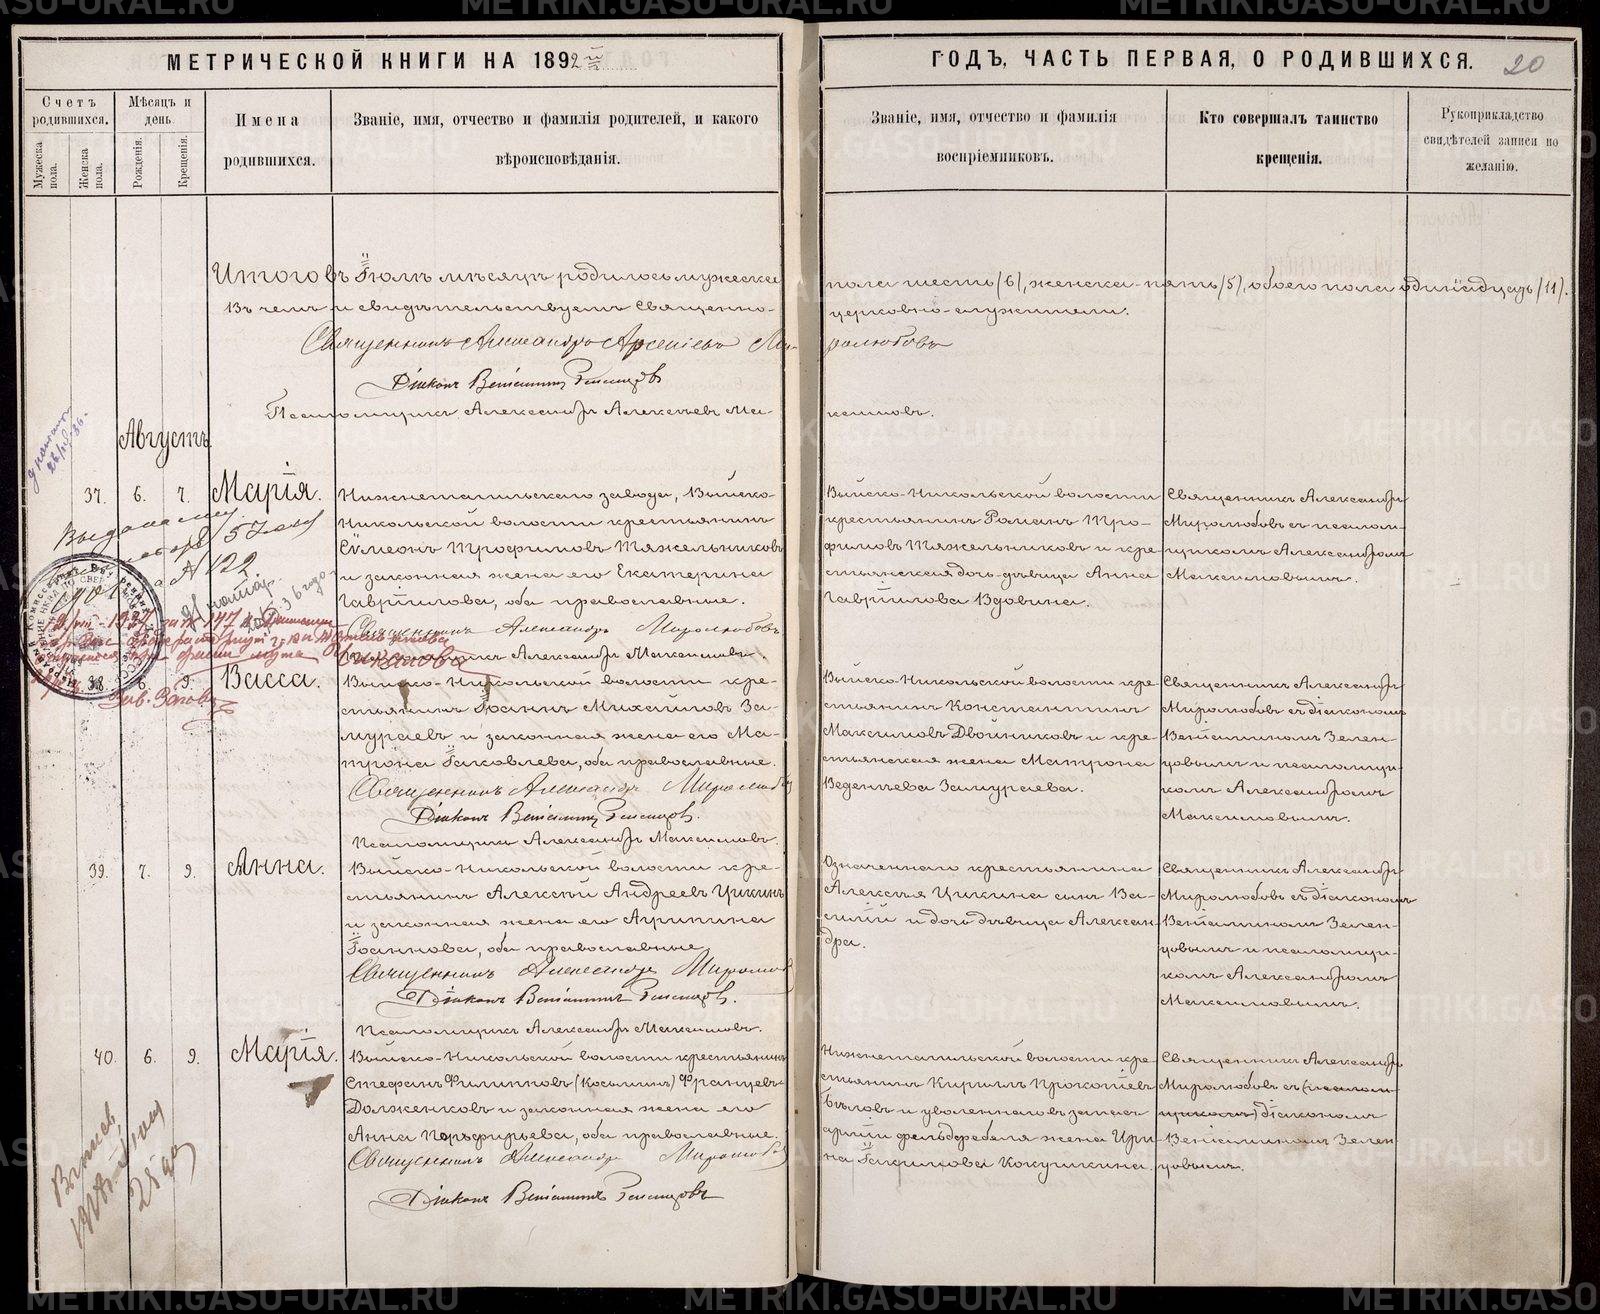 МЕТРИЧЕСКОЙ КНИГИ НА 1892
ГОДЪ, ЧАСТЬ ПЕРВАЯ, О РОДИВШИХСЯ. 20
Счетъ родившихся.
Мужеска пола.
Женска пола.
Мѣсяцъ и день
Рожденія.
Крещенія.
Имена родившихся.
Званіе, имя, отчество и фамилія родителей, и какого вѣроисповѣданія.
Званіе, имя, отчество и фамилія воспріемниковъ.
Кто совершалъ таинство крещенія.
Рукоприкладство свидѣтелей записи по желанію.
Итого въ Іюлѣ мѣсяцѣ родилось мужеска пола шесть (6), женска - пять (5), обоего пола одиннадцать (11).
Въ чемъ и свидѣтельствуемъ Священно-церковно-служители.
Священникъ Александръ Арсеніевъ Миролюбовъ
Діаконъ Веніаминъ Зеленцовъ
Псаломщикъ Александръ Алексѣевъ Максимовъ.
Августъ.
37. 6. 7. Марія.
Нижнетагильскаго завода, Выйско-
Никольской волости крестьянинъ
Сѵмеонъ Трофимовъ Тяжельниковъ
и законная жена его Екатерина
Гавріилова, оба православные.
Священникъ Александръ Миролюбовъ
Псаломщикъ Александръ Максимовъ.
Выйско-Никольской волости
крестьянинъ Романъ Тро-
фимовъ Тяжельниковъ и кре-
стьянская дочь-дѣвица Анна
Гавріилова Вдовина.
Священникъ Александръ
Миролюбовъ съ псалом-
щикомъ Александромъ
Максимовымъ.
38. 6. 9. Васса.
Выйско-Никольской волости кре-
стьянинъ Іоаннъ Михаиловъ За-
мураевъ и законная жена его Ма-
трона Іаковлева, оба православные.
Священникъ Александръ Миролюбовъ
Діаконъ Веніаминъ Зеленцовъ.
Псаломщикъ Александръ Максимовъ.
Выйско-Никольской волости кре-
стьянинъ Константинъ
Максимовъ Двойниковъ и кре-
стьянская жена Матрона
Веденѣева Замураева.
Священникъ Александръ
Миролюбовъ съ діакономъ
Веніаминомъ Зелен-
цовымъ и псаломщи-
комъ Александромъ
Максимовымъ.
39. 7. 9. Анна.
Выйско-Никольской волости кре-
стьянинъ Алексѣй Андреевъ Цикинъ
и законная жена его Агрипина
Іоаннова, оба православные
Священникъ Александръ Миролюбовъ
Діаконъ Веніаминъ Зеленцовъ.
Псаломщикъ Александръ Максимовъ.
Означеннаго крестьянина
Алексѣя Цикина сынъ Ва-
силій и дочь дѣвица Алексан-
дра.
Священникъ Александръ
Миролюбовъ съ діакономъ
Веніаминомъ Зелен-
цовымъ и псаломщи-
комъ Александромъ
Максимовымъ.
40. 6. 9. Марія.
Выйско-Никольской волости крестьянинъ
Стефанъ Филипповъ (Косьминъ) Францевъ-
Долженковъ и законная жена его
Анна Порфирьева, оба православные.
Священникъ Александръ Миролюбовъ
Діаконъ Веніаминъ Зеленцовъ
Нижнетагильской волости кре-
стьянинъ Кириллъ Прокопіевъ
Бѣловъ и уволеннаго въ запасъ
арміи фельдфебеля жена Ири-
на Іакимова Кокушкина.
Священникъ Александръ
Миролюбовъ съ (псалом-
щикомъ) діакономъ
Веніаминомъ Зелен-
цовымъ.
METRIKI.GASO-URAL.RU